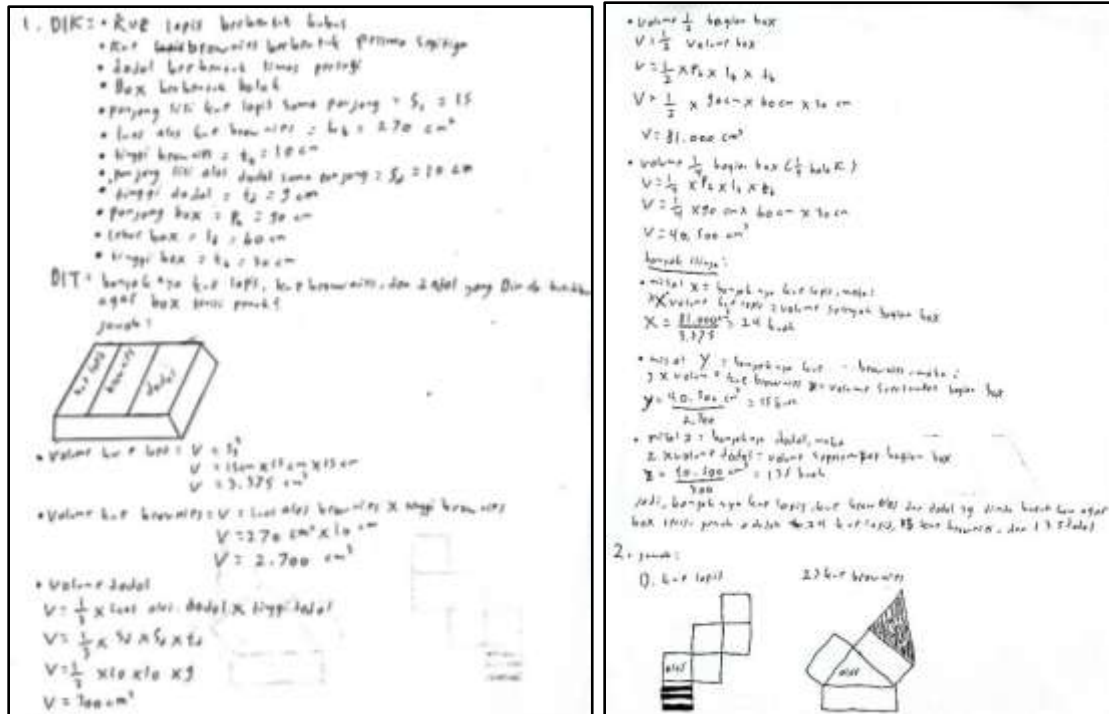 1. DIK: • Kue lapis berbentuk kubus
• Kue brownies berbentuk prisma segitiga
• dadal berbentuk limas persegi
• Box berbentuk balok
• panjang sisi kue lapis sama panjang = S₁ = 15
• luas alas kue brownies = = 270 cm²
• tinggi brownies = = 10 cm
• panjang sisi alas dadal sama panjang = = 10 cm
• tinggi dadal = = 9 cm
• panjang box = = 90 cm
• lebar box = = 60 cm
• tinggi box = = 30 cm
DIT = banyaknya kue lapis, kue brownies, dan dadal yang Dinda
agar box terisi penuh?
jawab:
kue lapis
brownies
dadal
• Volume kue lapis = V = S³
V = 15cm x 15 cm x 15 cm
V = 3.375 cm³
• Volume kue brownies = V = luas alas brownies x tinggi brownies
V = 270 cm² x 10 cm
V = 2.700 cm³
• Volume dadal
V = 1/3 x luas alas dadal x tinggi dadal
V = 1/3 x x x
V = 1/3 x 10 x 10 x 9
V = 300 cm³
• Volume 1/2 bagian box
V = 1/2 Volume box
V = 1/2 x x x
V = 1/2 x 90 cm x 60 cm x 30 cm
V = 81.000 cm³
• Volume 1/4 bagian box (1/4 balok)
V = 1/4 x x x
V = 1/4 x 90 cm x 60 cm x 30 cm
V = 40.500 cm³
banyak
• misal x = banyaknya kue lapis, maka:
x volume kue lapis = volume setengah bagian box
x = 81.000 cm³ / 3.375 = 24 buah
• misal y = banyaknya kue brownies, maka:
y x volume kue brownies = volume seperempat bagian box
y = 40.500 cm³ / 2.700 = 15 buah
• misal z = banyaknya dadal, maka
z x volume dadal = volume seperempat bagian box
z = 40.500 cm³ / 300 = 135 buah
jadi, banyaknya kue lapis, kue brownies dan dadal yg dinda butuhkan agar
box terisi penuh adalah 24 kue lapis, 15 kue brownies, dan 135 dadal
2. jawab:
1). kue lapis
2) kue brownies
alas
alas